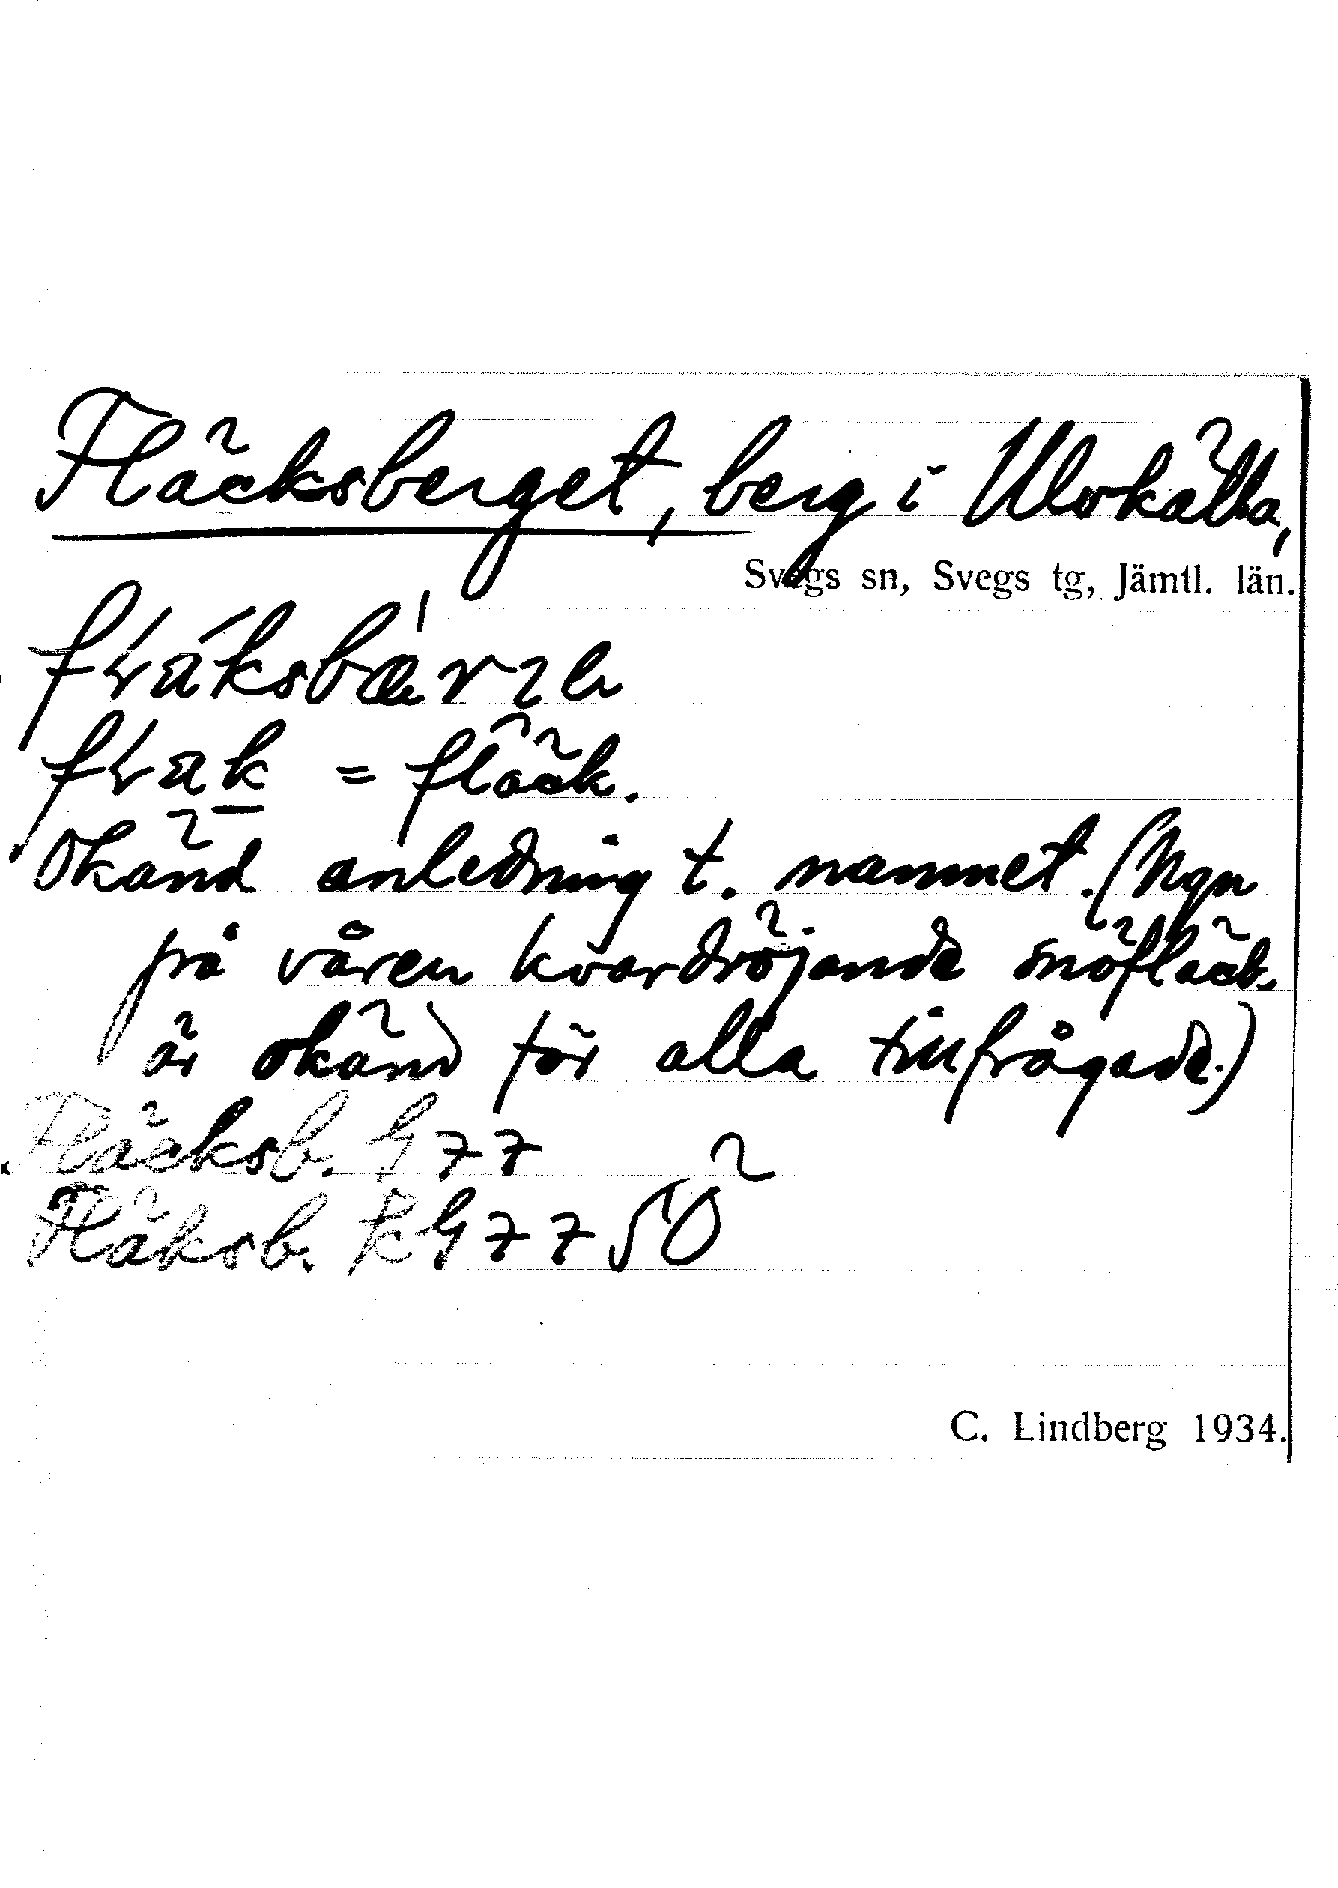 Fläcksberget, berg i Ulvkälla,
Svegs sn, Svegs tg, Jämtl. län.
= fläck.
Okänd anledning t. namnet. (Ngn
på våren kvardröjande snöfläck
är okänd för alla tillfrågade.)
Fläcksb. G 77
Fläksb. KG 77 SÖ
C. Lindberg 1934.